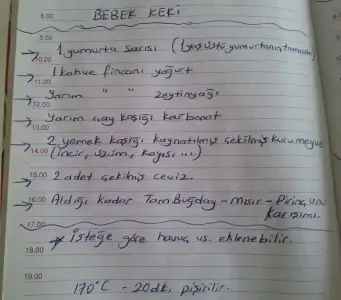 8.00 BEBEK KEKİ
9.00
10.00 1 yumurta sarısı (1 yaş üstü yumurtanın tamamı)
11.00 1 kahve fincanı yoğurt
12.00 Yarım " " zeytinyağı
13.00 Yarım çay kaşığı karbonat
14.00 2 yemek kaşığı kaynatılmış çekilmiş kuru meyve
(incir, üzüm, kayısı ...)
15.00 2 adet çekilmiş ceviz.
16.00 Aldığı kadar Tam Buğday - mısır - Pirinç unu
karışımı.
17.00
18.00 * İsteğe göre havuç vs. eklenebilir.
19.00
170°C - 20dk. pişirilir.